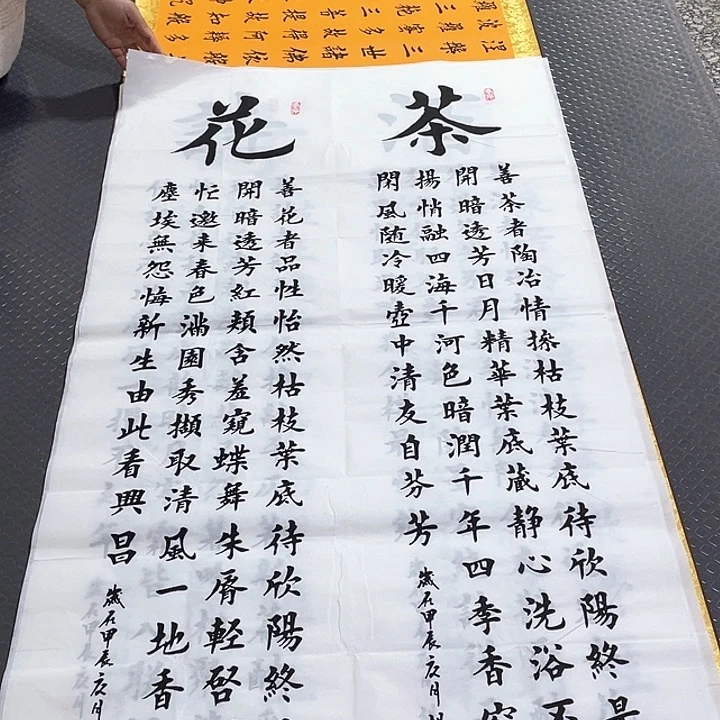 茶
善茶者陶冶情搽枯枝葉底待欣陽終是
開暗透芳日月精華葉底藏静心洗浴不
揚悄融四海千河色暗潤千年四季香
閑風随冷暖壺中清友自芬芳
歲在甲辰亥月
花
善花者品性怡然枯枝葉底待欣陽終
開暗透芳紅頰含羞窺蝶舞朱唇輕啓
忙邀来春色滿園秀擷取清風一地香
塵埃無怨悔新生由此看興昌
歲在甲辰亥月